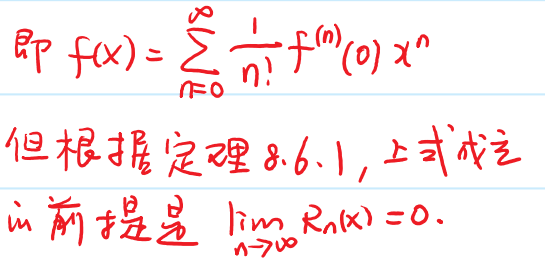 即 f(x) = ∑_{n=0}^{∞} \frac{1}{n!} f^{(n)}(0) x^n
但根据定理 8.6.1, 上式成立
的前提是 lim_{n→∞} R_n(x) = 0.